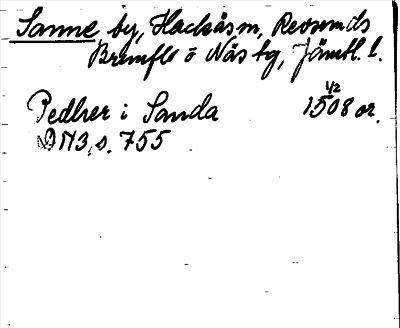 Sanne by, Hackås sn, Revsunds
Brunflo o Näs tg, Jämtl. l.
Pedher i Sanda 1/2 1508 or.
DN 3, s. 755